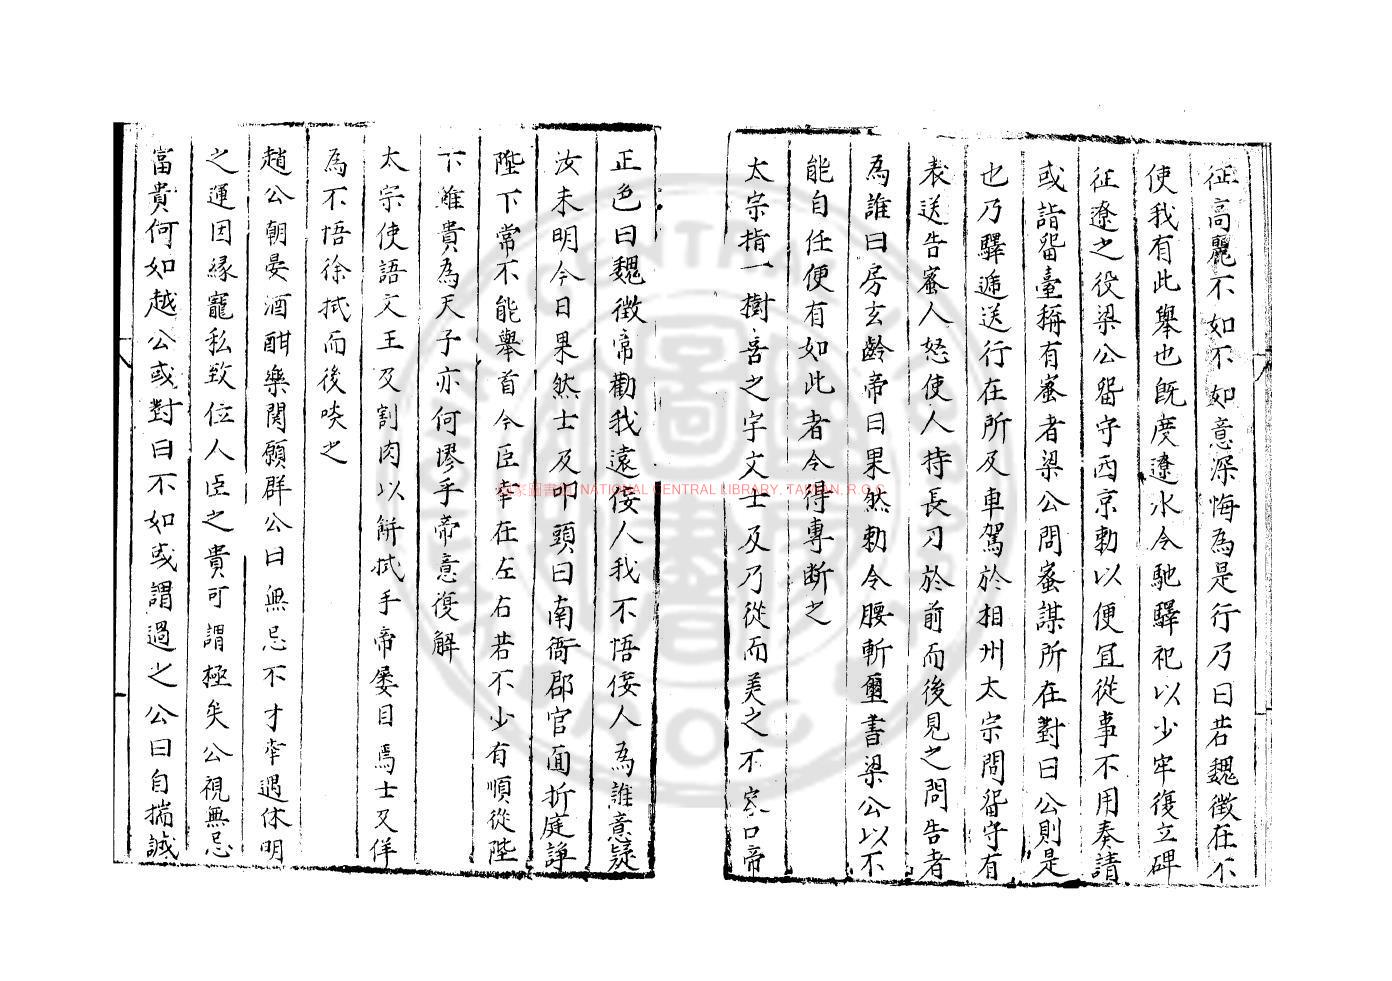 征高麗不如不如意深悔為是行乃曰若魏徵在不
使我有此舉也既度遼水令馳驛祀以少牢復立碑
征遼之役梁公畱守西京勅以便宜從事不用奏請
或詣畱臺稱有蜜者梁公問蜜謀所在對曰公則是
也乃驛逓送行在所及車駕於相州太宗問畱守有
表送告蜜人怒使人持長刀於前而後見之問告者
為誰曰房玄齡帝曰果然勅令腰斬璽書梁公以不
能自任便有如此者令得專断之
太宗指一樹喜之宇文士及乃從而美之不容口帝
正色曰魏徵常勸我遠佞人我不悟佞人為誰意疑
汝未明今日果然士及叩頭曰南衙郡官面折庭諍
陛下常不能舉首今臣幸在左右若不少有順從陛
下雖貴為天子亦何謬乎帝意復解
太宗使語文王及割肉以觧拭手帝屡目焉士又佯
為不悟徐拭而後啖之
趙公朝晏酒酣樂闋顧群公曰無忌不才幸遇休明
之運因緣寵私致位人臣之貴可謂極矣公視無忌
富貴何如越公或對曰不如或謂過之公曰自揣誠